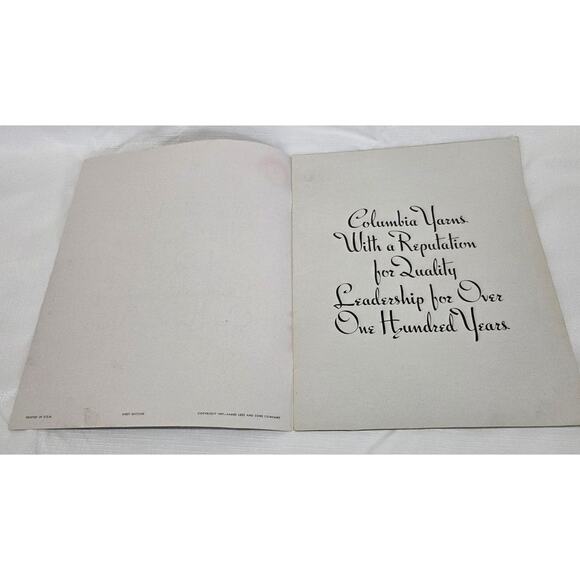 PRINTED IN U.S.A. FIRST EDITION COPYRIGHT 1947—JAMES LEES AND SONS COMPANY
Columbia Yarns
With a Reputation
for Quality
Leadership for Over
One Hundred Years